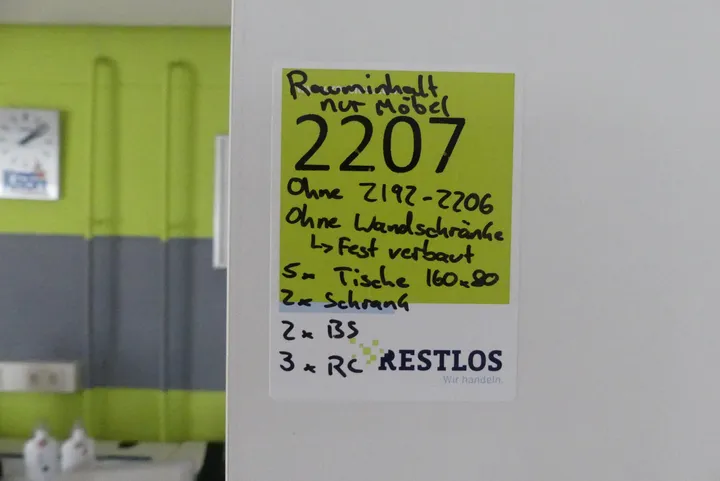 Rauminhalt
nur Möbel
2207
Ohne 2192-2206
Ohne Wandschränke
↳ Fest verbaut
5x Tische 160x80
2x Schrank
2x BS
3x RC
RESTLOS
Wir handeln.